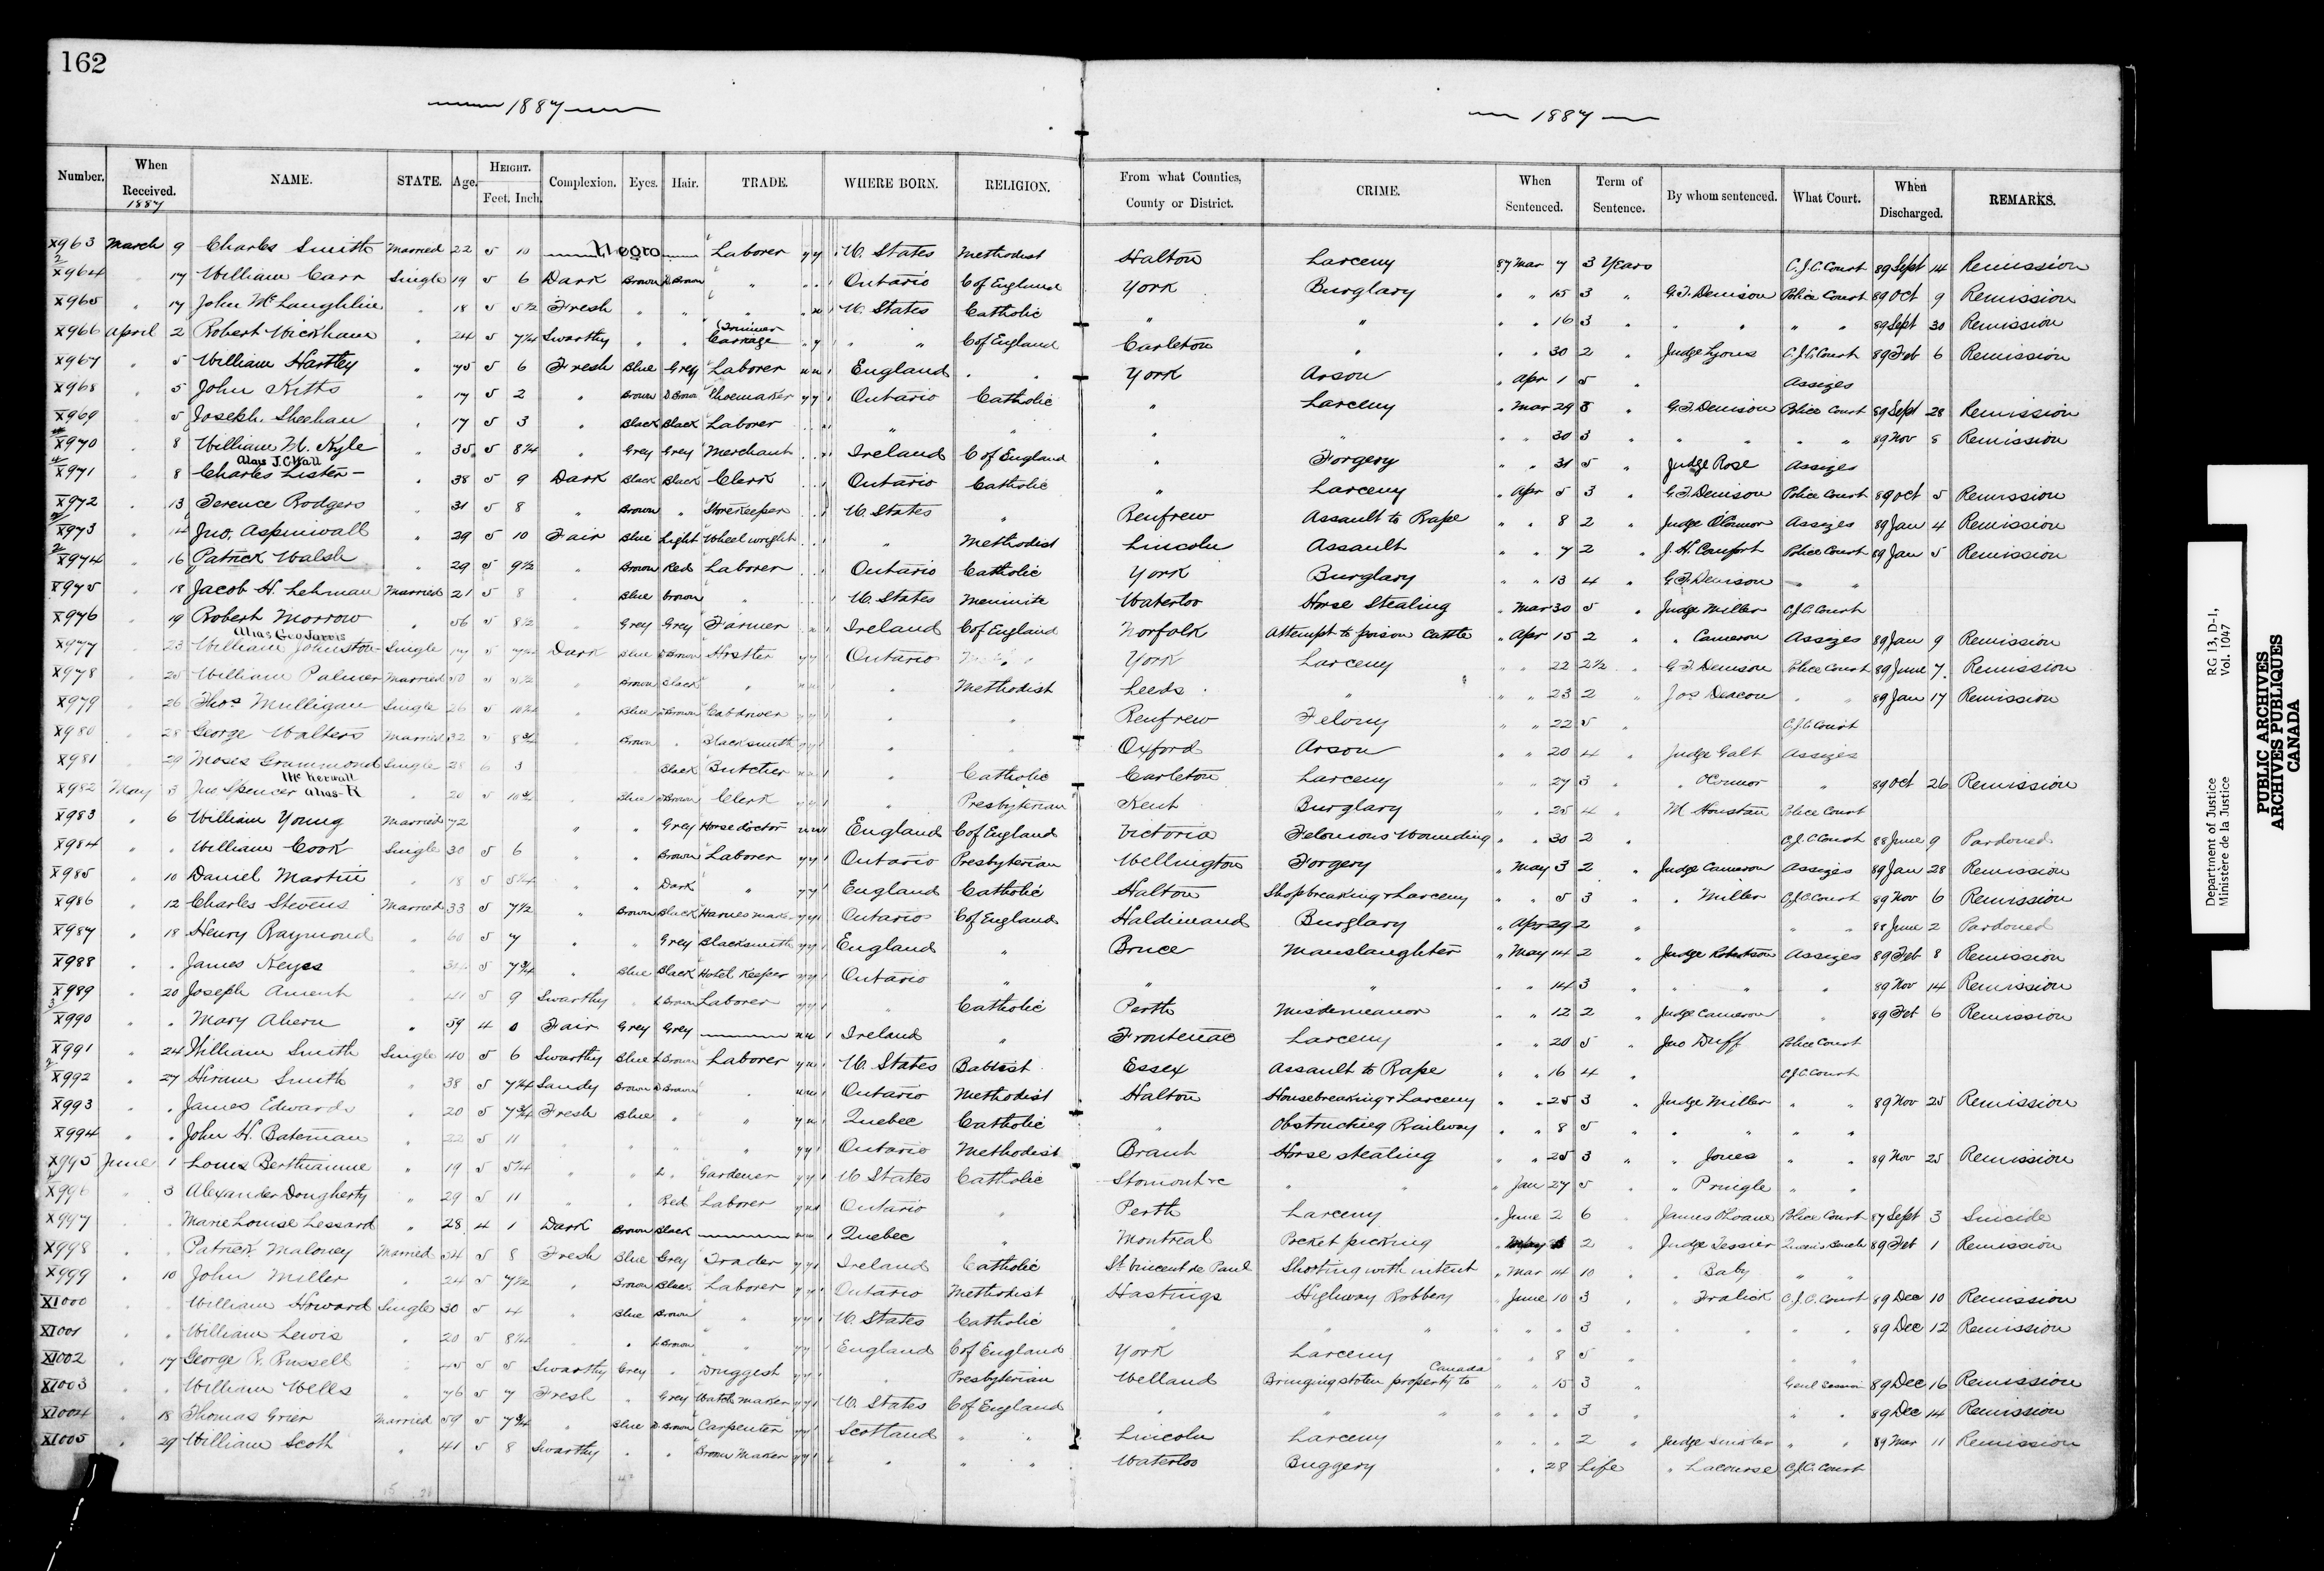 162
1887
1887
Number. When Received. 1887 NAME. STATE. Age. HEIGHT. Feet. Inch. Complexion. Eyes. Hair. TRADE. WHERE BORN. RELIGION. From what Counties, County or District. CRIME. When Sentenced. Term of Sentence. By whom sentenced. What Court. When Discharged. REMARKS.
X963 March 9 Charles Smith Married 22 5 10 Negro Laborer y y 1 U. States Methodist Halton Larceny 87 Mar 7 3 Years C.J.C. Court 89 Sept 14 Remission
X964 " 17 William Carr Single 19 5 6 Dark Brown D Brown " Ontario C of England York Burglary " " 15 3 " G.T. Denison Police Court 89 Oct 9 Remission
X965 " 17 John McLaughlin " 18 5 5½ Fresh " " " U. States Catholic " " " " 16 3 " " " " " 89 Sept 30 Remission
X966 April 2 Robert Wickham " 24 5 7¼ Swarthy " " Carriage Trimmer " " C of England Carleton " " " 30 2 " Judge Lyons C.J.C. Court 89 Feb 6 Remission
X967 " 5 William Hartley " 75 5 6 Fresh Blue Grey Laborer n n 1 England " York Arson " Apr 1 5 " Assizes
X968 " 5 John Kitts " 17 5 2 " Brown D Brown Shoemaker y y 1 Ontario Catholic " Larceny " Mar 29 3 " G.T. Denison Police Court 89 Sept 28 Remission
X969 " 5 Joseph Sheehan " 17 5 3 " Black Black Laborer " " " " " " 30 3 " " " " " 89 Nov 8 Remission
X970 " 8 William M. Kyle " 35 5 8¼ " Grey Grey Merchant Ireland C of England " Forgery " " 31 5 " Judge Rose Assizes
X971 " 8 Charles Lister alias J.C. Wall " 38 5 9 Dark Black Black Clerk Ontario Catholic " Larceny " Apr 5 3 " G.T. Denison Police Court 89 Oct 5 Remission
X972 " 13 Terence Rodgers " 31 5 8 " Brown " Storekeeper U. States " Renfrew Assault to Rape " " 8 2 " Judge O'Connor Assizes 89 Jan 4 Remission
X973 " 14 Jno. Aspinwall " 29 5 10 Fair Blue Light Wheelwright " Methodist Lincoln Assault " " 7 2 " J.H. Comfort Police Court 89 Jan 5 Remission
X974 " 16 Patrick Walsh " 29 5 9½ " Brown Red Laborer Ontario Catholic York Burglary " " 13 4 " G.T. Denison " "
X975 " 18 Jacob H. Lehman Married 21 5 8 " Blue Brown " U. States Mennonite Waterloo Horse Stealing " Mar 30 5 " Judge Miller C.J.C. Court
X976 " 19 Robert Morrow " 56 5 8½ " Grey Grey Farmer Ireland C of England Norfolk Attempt to poison Cattle " Apr 15 2 " " Cameron Assizes 89 Jan 9 Remission
X977 " 23 William Johnston Alias Geo Jarvis Single Dark Blue D Brown Hostler Ontario York Larceny " " 22 2½ " G.T. Denison Police Court 89 June 7 Remission
X978 " 25 William Palmer Married 50 5 5½ " Brown Black " " Methodist Leeds " " " 23 2 " Jos Deacon " " 89 Jan 17 Remission
X979 " 26 Thos Mulligan Single 26 5 " Blue D Brown Cab driver " " Renfrew Felony " " 22 5 " C.J.C Court
X980 " 28 George Walters Married 32 5 8¾ " Brown " Blacksmith " " Oxford Arson " " 20 4 " Judge Galt Assizes
X981 " 29 Moses Grammond Single 28 6 3 Black Butcher " Catholic Carleton Larceny " " 27 3 " " O'Connor " 89 Oct 26 Remission
X982 May 3 Jno Spencer alias R McKerwall " 20 5 10¾ " Blue D Brown Clerk " Presbyterian Kent Burglary " " 25 4 " M. Houston Police Court
X983 " 6 William Young Married 72 " " Grey Horse doctor n n 1 England C of England Victoria Felonious Wounding " " 30 2 " C.J.C Court 88 June 9 Pardoned
X984 " " William Cook Single 30 5 6 " " Brown Laborer y y 1 Ontario Presbyterian Wellington Forgery " May 3 2 " Judge Cameron Assizes 89 Jan 28 Remission
X985 " 10 Daniel Martin " 18 5 5¼ " " Dark " y y 1 England Catholic Halton Shopbreaking & Larceny " " 5 3 " " Miller C.J.C. Court 89 Nov 6 Remission
X986 " 12 Charles Stevens Married 33 5 7½ " Brown Black Harness maker y y 1 Ontario C of England Haldimand Burglary " Apr 29 2 " " " 88 June 2 Pardoned
X987 " 18 Henry Raymond " 60 5 7 " " Grey Blacksmith y y 1 England " Bruce Manslaughter " May 14 2 " Judge Robertson Assizes 89 Feb 8 Remission
X988 " " James Keyes " 5 7¾ " Blue Black Hotel Keeper y y 1 Ontario " " " " " 14 3 " " " " 89 Nov 14 Remission
X989 " 20 Joseph Ament " 41 5 9 Swarthy " L Brown Laborer y y 1 Catholic Perth Misdemeanor " " 12 2 " Judge Cameron " 89 Feb 6 Remission
X990 " " Mary Ahern " 59 4 0 Fair Grey Grey n n 1 Ireland " Frontenac Larceny " " 20 5 " Jno Duff Police Court
X991 " 24 William Smith Single 40 5 6 Swarthy Blue L Brown Laborer y n 1 U. States Babtist Essex Assault to Rape " " 16 4 " C.J.C Court
X992 " 27 Hiram Smith " 38 5 7¼ Sandy Brown D Brown " n n 1 Ontario Methodist Halton Housebreaking & Larceny " " 25 3 " Judge Miller " " 89 Nov 25 Remission
X993 " " James Edwards " 20 5 7¾ Fresh Blue " " y n 1 Quebec Catholic " Obstructing Railway " " 8 5 " " " " "
X994 " " John H. Bateman " 22 5 11 " " " " y y 1 Ontario Methodist Brant Horse stealing " " 25 3 " " Jones " " 89 Nov 25 Remission
X995 June 1 Louis Berthiaume " 19 5 5¼ " " L " Gardener y y 1 U States Catholic Stormont &c " " " Jan 27 5 " " Pringle " "
X996 " 3 Alexander Dougherty " 29 5 11 " " Red Laborer Ontario " Perth Larceny " June 2 6 " James O'Loane Police Court 87 Sept 3 Suicide
X997 " " Marie Louise Lessard " 28 4 1 Dark Brown Black n n 1 Quebec " Montreal Pocket picking " May 2 " Judge Tessier Queen's Bench 89 Feb 1 Remission
X998 " " Patrick Maloney Married 54 5 8 Fresh Blue Grey Trader y y 1 Ireland Catholic St Vincent de Paul Shooting with intent " Mar 14 10 " " Baby " "
X999 " 10 John Miller " 24 5 7½ " Brown Black Laborer y y 1 Ontario Methodist Hastings Highway Robbery " June 10 3 " " Fralick C.J.C. Court 89 Dec 10 Remission
XI000 " " William Howard Single 30 5 4 " Blue Brown " y y 1 U. States Catholic " " " " " " 3 " " " " " 89 Dec 12 Remission
XI001 " " William Lewis " 20 5 8¼ " " L Brown " y y 1 England C of England York Larceny " " 8 5 " " " "
XI002 " 17 George R. Russell " 5 5 Swarthy Grey " Druggist y y 1 " Presbyterian Welland Bringing stolen property to Canada " " 15 3 " Genl Session 89 Dec 16 Remission
XI003 " " William Wells " 76 5 7 Fresh " Grey Watch maker y y 1 U. States C of England " " " " " " 3 " " 89 Dec 14 Remission
XI004 " 18 Thomas Grier Married 59 5 7¾ " Blue D Brown Carpenter y y 1 Scotland " " Lincoln Larceny " " " 2 " Judge Sinkler " " 89 Mar 11 Remission
XI005 " 29 William Scott " 41 5 8 Swarthy " " Broom Maker y y 1 " " " Waterloo Buggery " " 28 Life " Lacourse C.J.C. Court
Department of Justice
Ministère de la Justice
RG 13, D-1,
Vol. 1047
PUBLIC ARCHIVES
ARCHIVES PUBLIQUES
CANADA